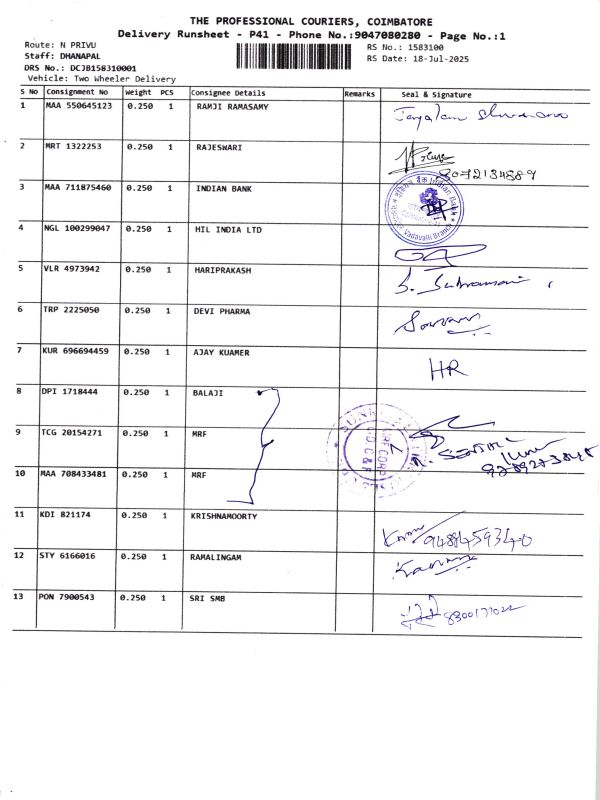 THE PROFESSIONAL COURIERS, COIMBATORE
Delivery Runsheet - P41 - Phone No.:9047080280 - Page No.:1
Route: N PRIVU
RS No.: 1583100
Staff: DHANAPAL
RS Date: 18-Jul-2025
DRS No.: DCJB158310001
Vehicle: Two Wheeler Delivery
S No Consignment No Weight PCS Consignee Details Remarks Seal & Signature
1 MAA 550645123 0.250 1 RAMJI RAMASAMY
2 MRT 1322253 0.250 1 RAJESWARI
3 MAA 711875460 0.250 1 INDIAN BANK Indian Bank Vadavalli Branch
4 NGL 100299047 0.250 1 HIL INDIA LTD
5 VLR 4973942 0.250 1 HARIPRAKASH
6 TRP 2225050 0.250 1 DEVI PHARMA
7 KUR 696694459 0.250 1 AJAY KUAMER HR
8 DPI 1718444 0.250 1 BALAJI
9 TCG 20154271 0.250 1 MRF
10 MAA 708433481 0.250 1 MRF
11 KDI 821174 0.250 1 KRISHNAMOORTY
12 STY 6166016 0.250 1 RAMALINGAM
13 PON 7900543 0.250 1 SRI SMB